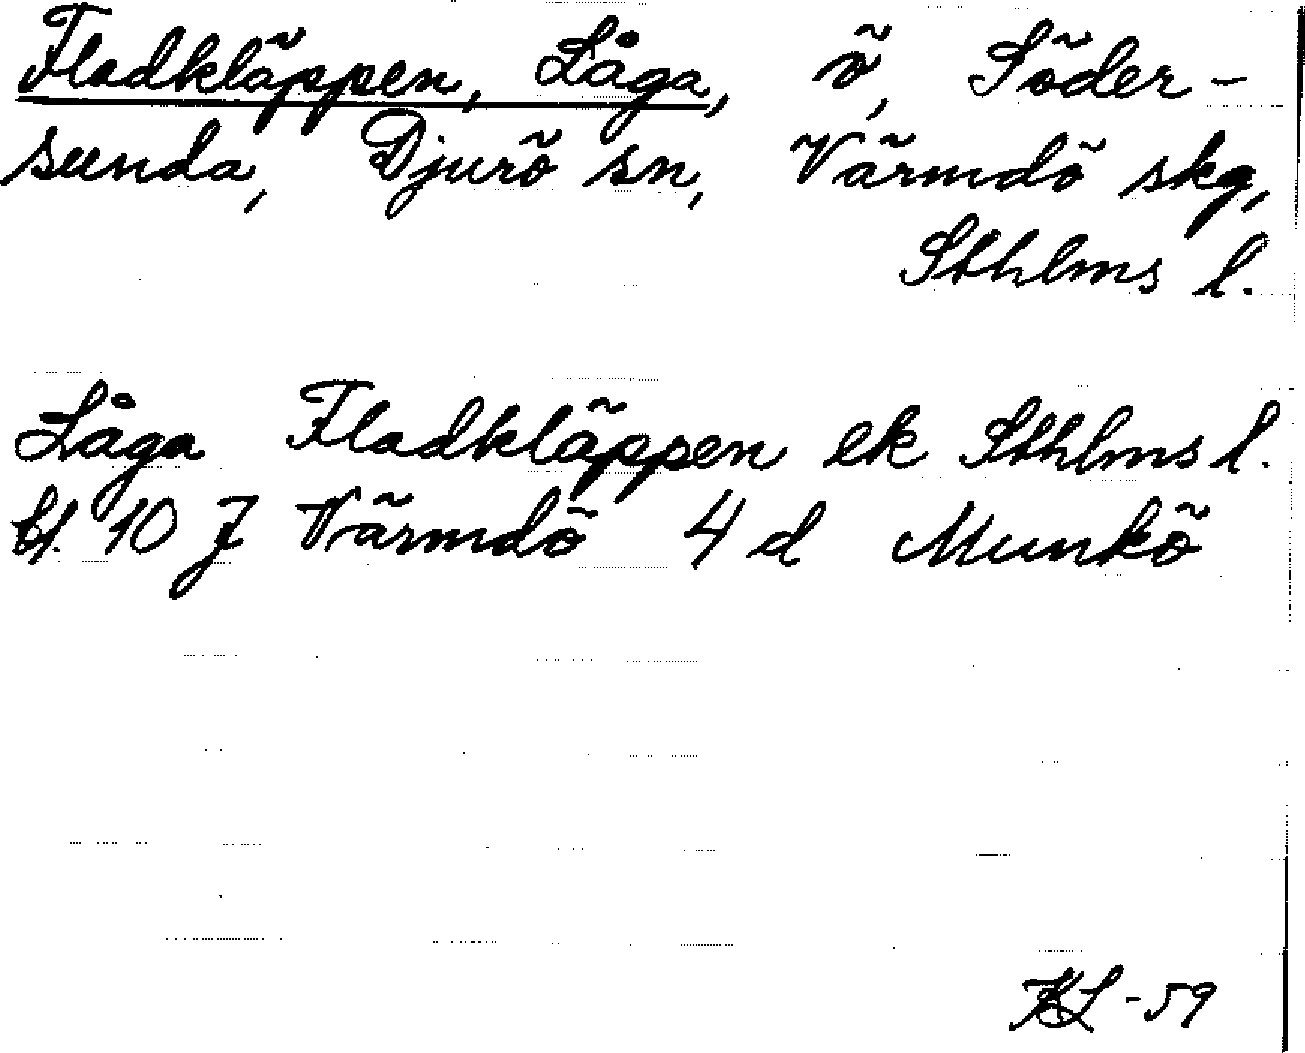 Fladkläppen, Låga, ö, Söder-
sunda, Djurö sn, Värmdö skg,
Sthlms l.
Låga Fladkläppen ek Sthlms l.
bl. 10 J Värmdö 4 d Munkö
KL -59